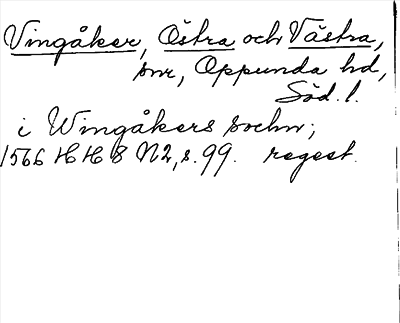 Vingåker, Östra och Västra,
snr, Oppunda hd,
Söd. l.
i Wingåkers sochn;
1566 HH 8 N2, s. 99. regest.